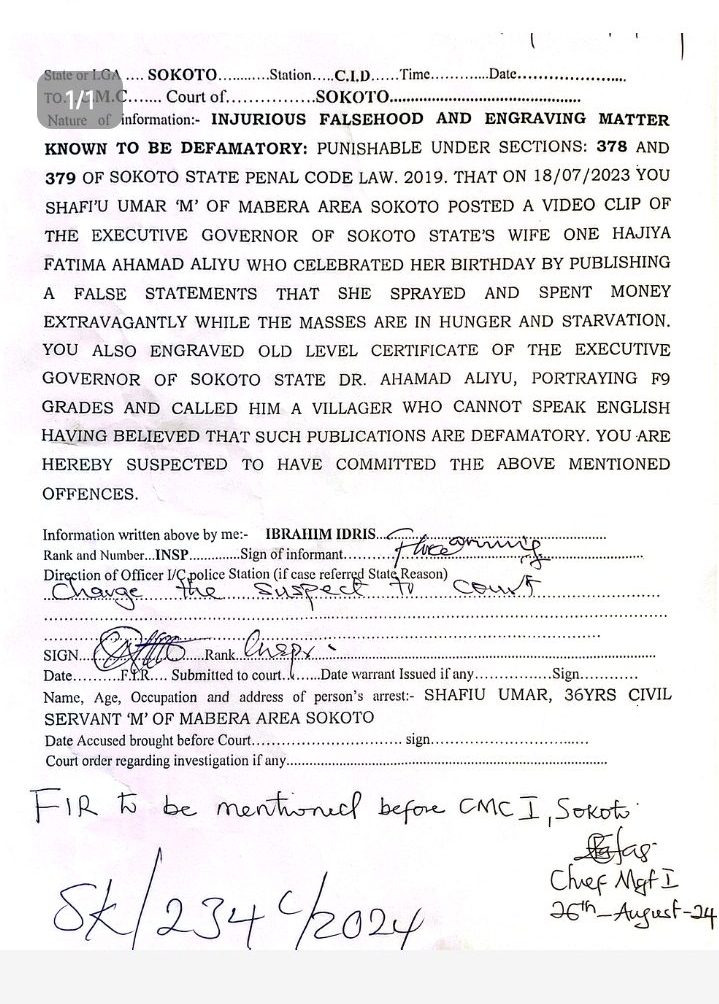 State or LGA .... SOKOTO...........Station.....C.I.D......Time.............Date.........................
TO. .M.C....... Court of................SOKOTO..................................................
1/1
Nature of information:- INJURIOUS FALSEHOOD AND ENGRAVING MATTER
KNOWN TO BE DEFAMATORY: PUNISHABLE UNDER SECTIONS: 378 AND
379 OF SOKOTO STATE PENAL CODE LAW. 2019. THAT ON 18/07/2023 YOU
SHAFI'U UMAR 'M' OF MABERA AREA SOKOTO POSTED A VIDEO CLIP OF
THE EXECUTIVE GOVERNOR OF SOKOTO STATE'S WIFE ONE HAJIYA
FATIMA AHAMAD ALIYU WHO CELEBRATED HER BIRTHDAY BY PUBLISHING
A FALSE STATEMENTS THAT SHE SPRAYED AND SPENT MONEY
EXTRAVAGANTLY WHILE THE MASSES ARE IN HUNGER AND STARVATION.
YOU ALSO ENGRAVED OLD LEVEL CERTIFICATE OF THE EXECUTIVE
GOVERNOR OF SOKOTO STATE DR. AHAMAD ALIYU, PORTRAYING F9
GRADES AND CALLED HIM A VILLAGER WHO CANNOT SPEAK ENGLISH
HAVING BELIEVED THAT SUCH PUBLICATIONS ARE DEFAMATORY. YOU ARE
HEREBY SUSPECTED TO HAVE COMMITTED THE ABOVE MENTIONED
OFFENCES.
Information written above by me:- IBRAHIM IDRIS..........................................................
Rank and Number...INSP..............Sign of informant.............
Direction of Officer I/C police Station (if case referred State Reason)
Charge the suspect to court
SIGN............Rank Inspr.
Date..........F.I.R.... Submitted to court..........Date warrant Issued if any.................Sign............
Name, Age, Occupation and address of person's arrest:- SHAFIU UMAR, 36YRS CIVIL
SERVANT 'M' OF MABERA AREA SOKOTO
Date Accused brought before Court................................. sign.............................
Court order regarding investigation if any.......................................................................
FIR to be mentioned before CMC I, Sokoto
Chief Mgt I
26th-August-24
SK/234 C/2024